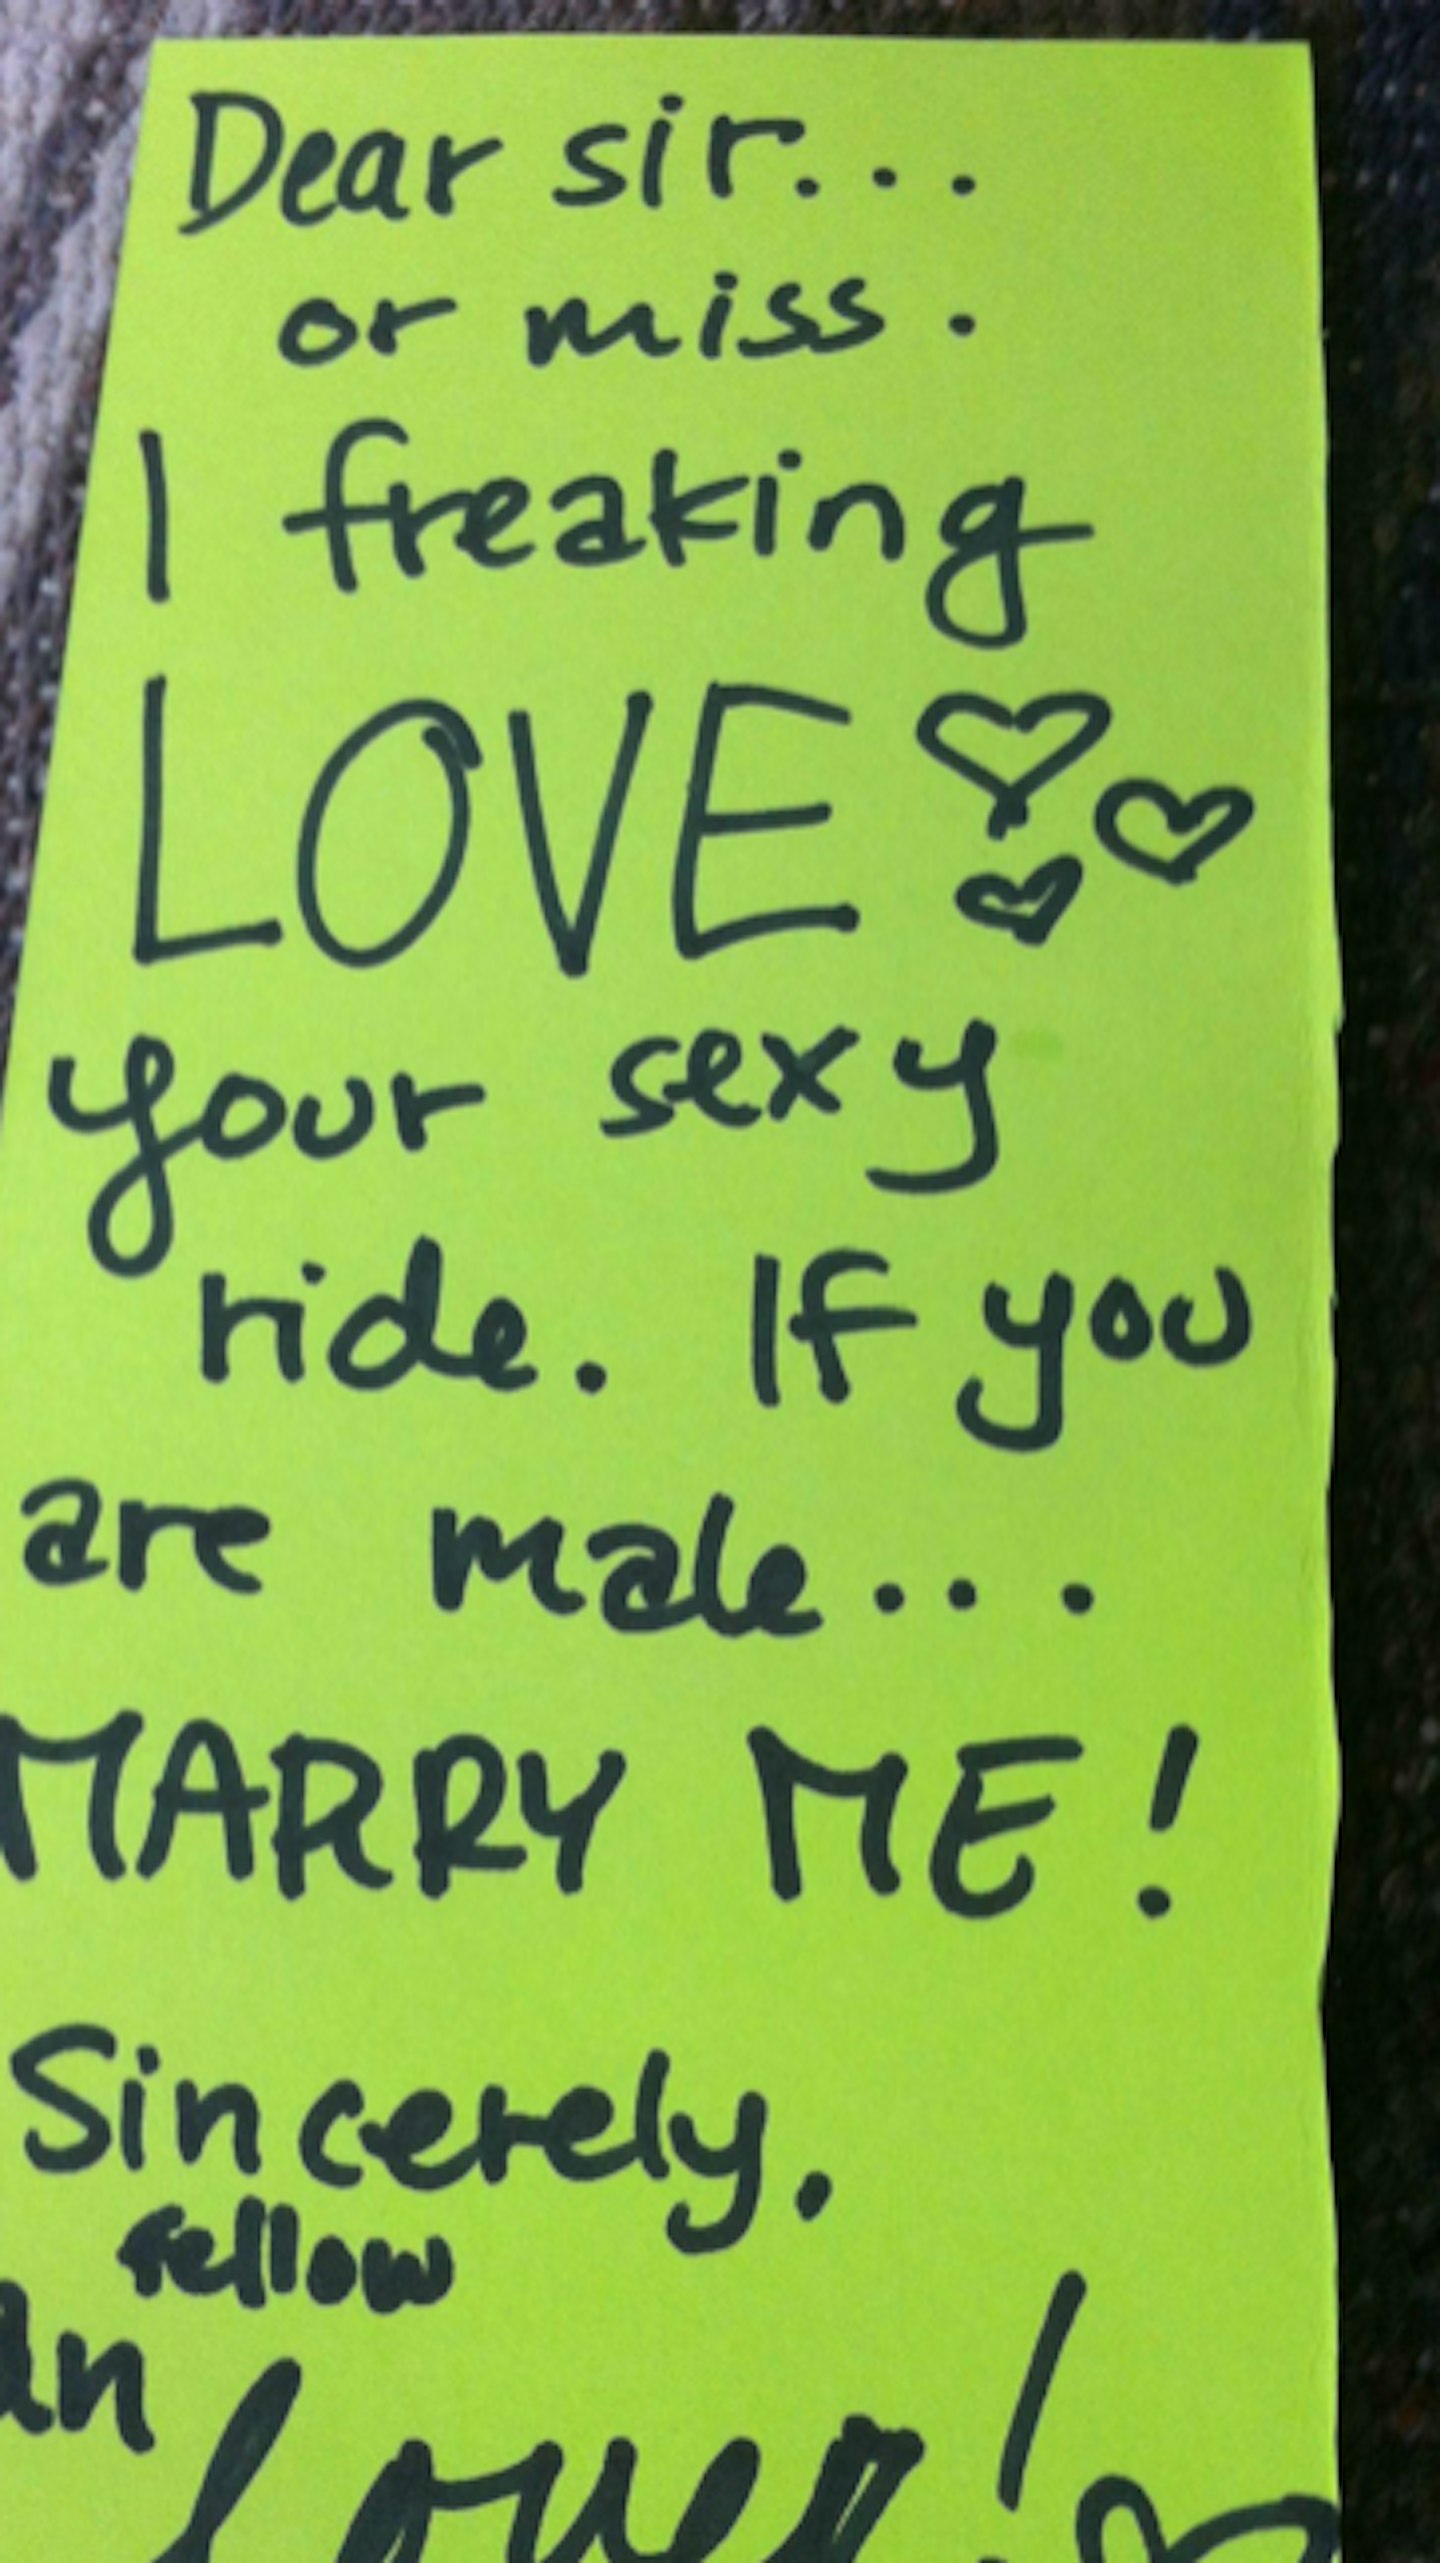 Dear sir...
or miss.
I freaking
LOVE
your sexy
ride. If you
are male...
MARRY ME!
Sincerely,
fellow
lover!